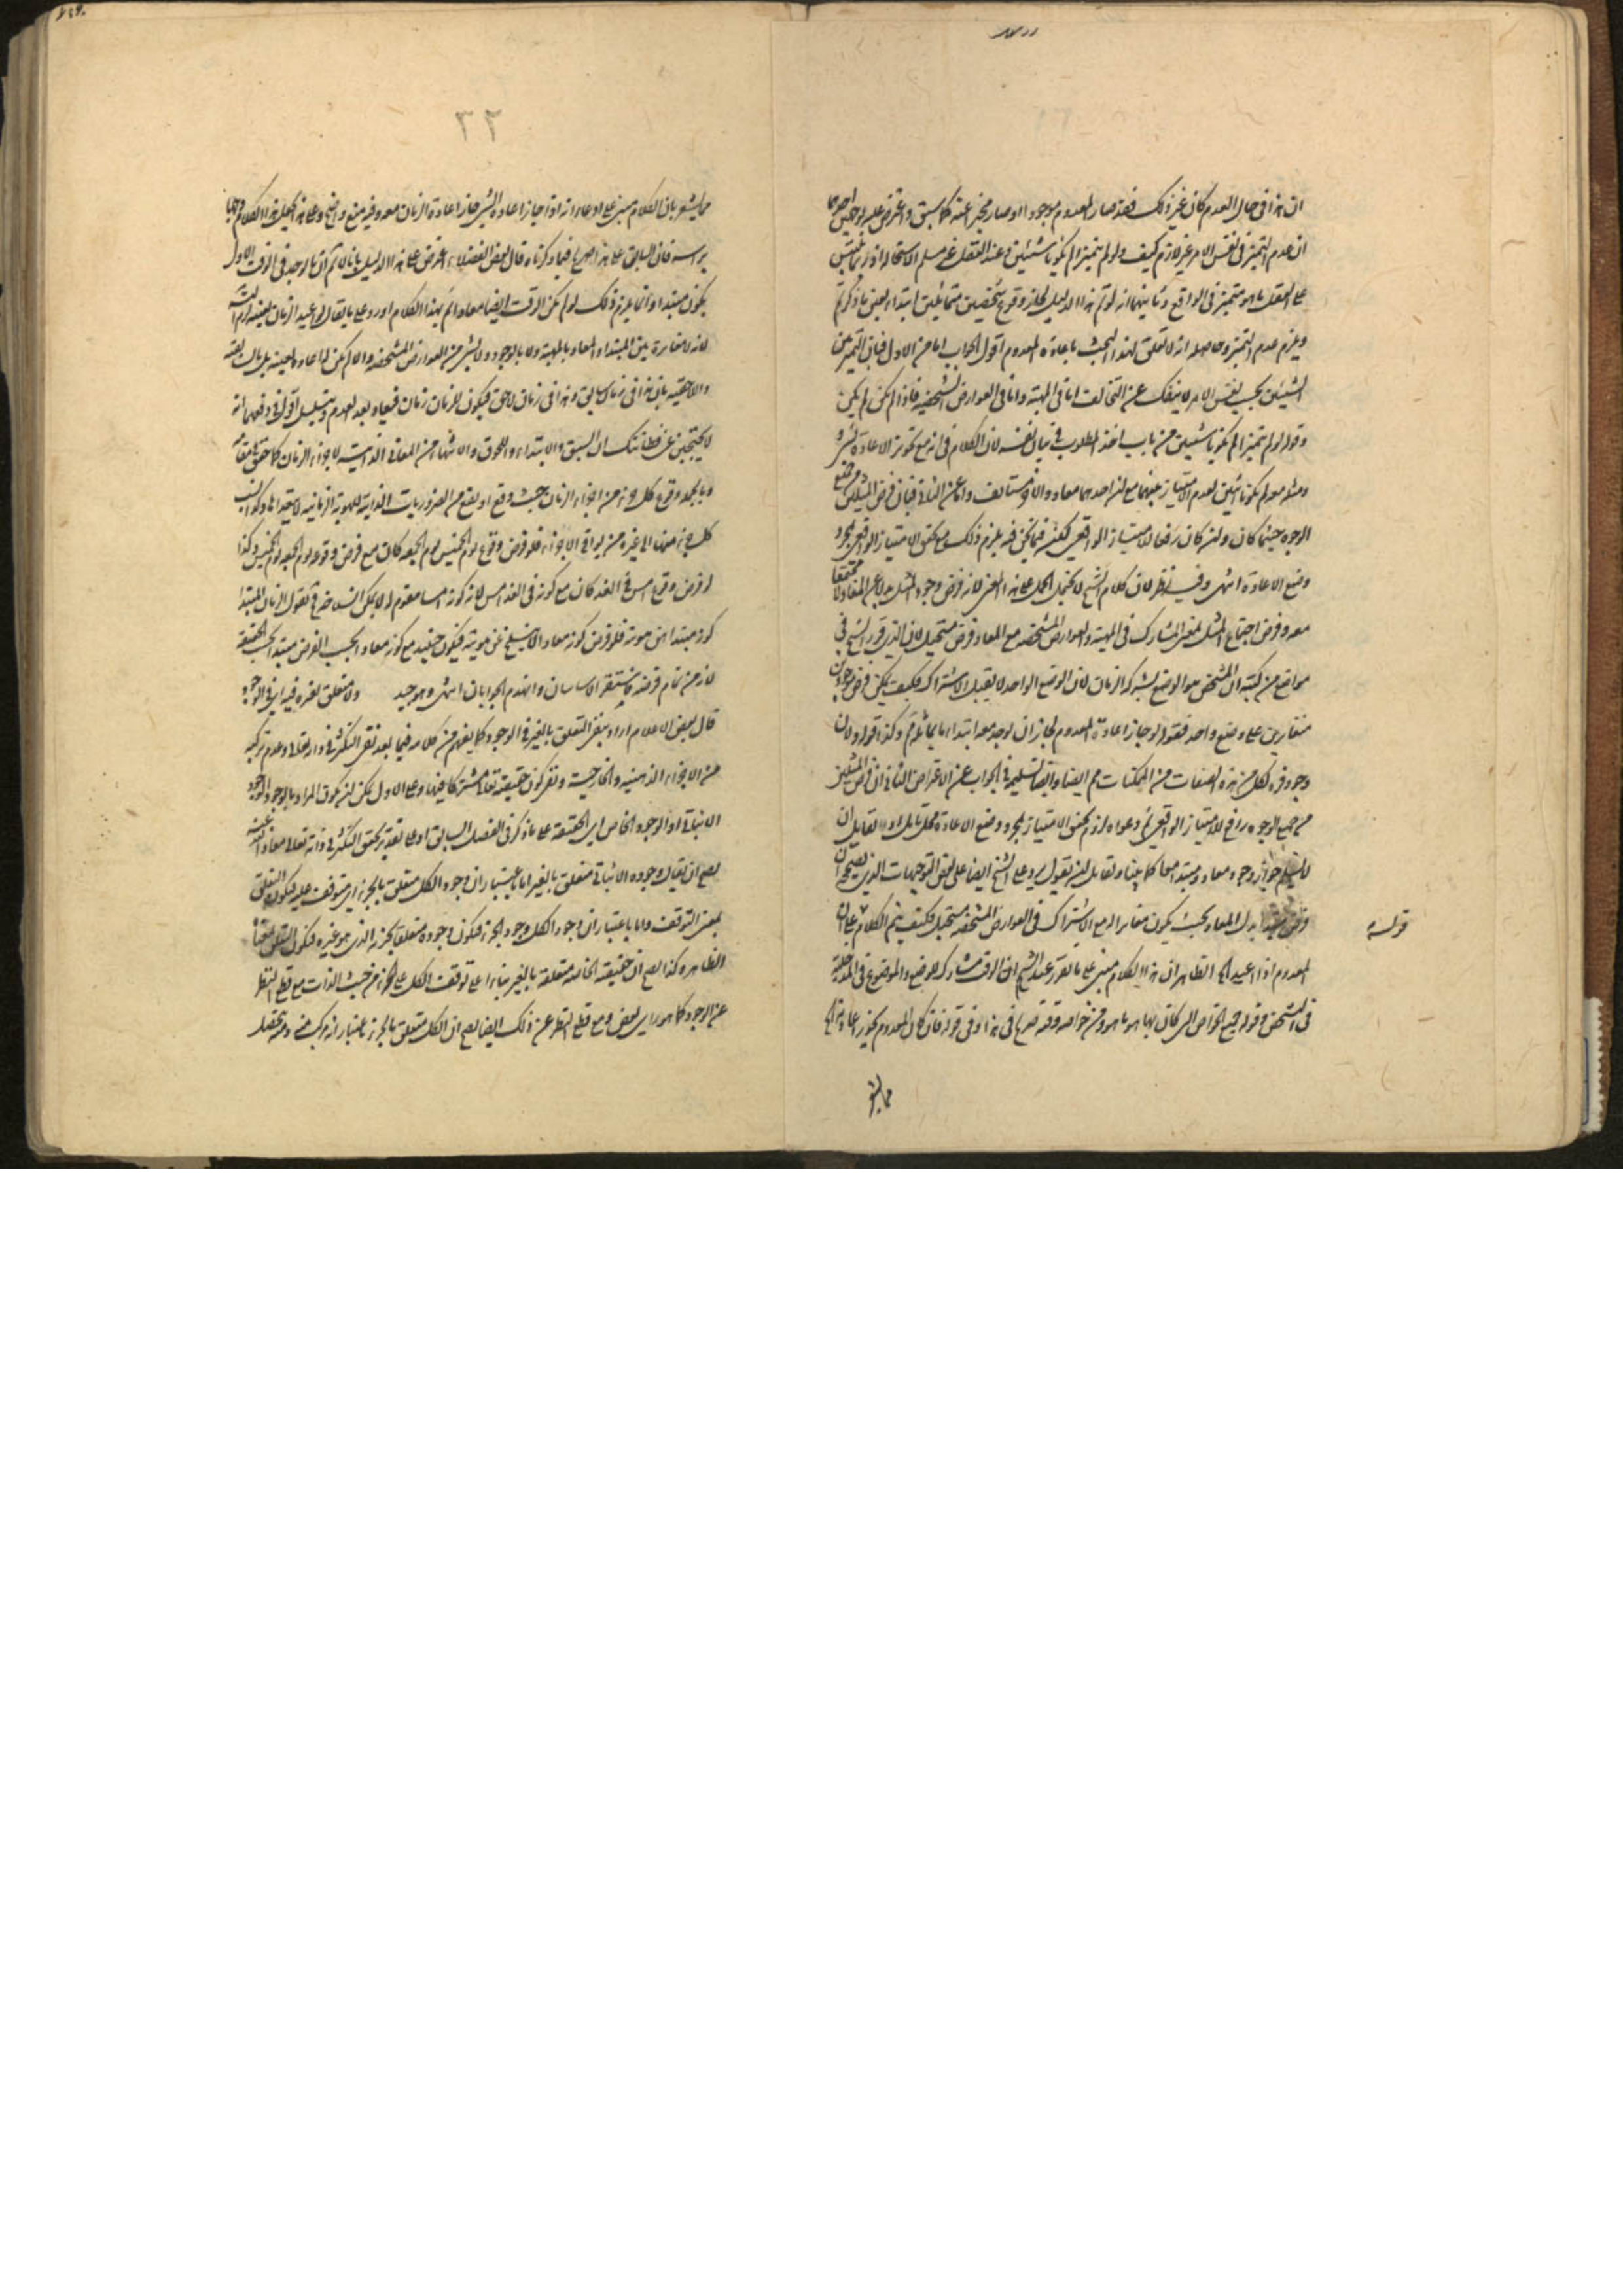 ان هذا فى حال العدم كان غير ذلك فقد صار المعدوم موجودا او صار مخبرا عنه كما سبق واعترض عليه بوجهين احدهما
ان عدم التميز فى نفس الامر غير لازم كيف ولو لم يتميزا لم يكونا شيئين وعند العقل غير مسلم الاستحالة اذ ربما يلتبس
على العقل ما هو متميز فى الواقع وثانيهما انه لو تم هذا الدليل لجاز وقوع شخصين متماثلين ابتداء بعين ما ذكرتم
ويلزم عدم التميز وحاصله انه لا تعلق لهذا البحث باعادة المعدوم اقول الجواب اما عن الاول فبان التميز بين
الشيئين بحسب نفس الامر لا ينفك عن التخالف اما فى المهية واما فى العوارض الشخصية فاذا لم يكن لم يكن
وقوله لو لم يتميزا لم يكونا شيئين من باب اخذ المطلوب فى بيان نفسه لان الكلام فى انه مع تجويز الاعادة لشىء
ومثله معه لم يكونا اثنين لعدم الامتياز بينهما مع ان احدهما معاد والاخر مستأنف واما عن الثانى فبان فرض المثلين من جميع
الوجوه حيثما كان وان كان رفعا للامتياز الواقعى لكنه فيما نحن فيه يلزم ذلك مع تحقق الامتياز الواقعى بمجرد
وضع الاعادة انتهى وفيه نظر لان كلام الشيخ لا يحتمل الحمل على هذا المعنى لانه فرض وجود المثل بدلا عن المعاد لا مجتمعا
معه وفرض اجتماع المثل بمعنى المشارك فى المهية والعوارض المشخصة مع المعاد فرض مستحيل لان الذى قرره الشيخ فى
مواضع من كتبه ان المشخص هو الوضع بشركة الزمان لان الوضع الواحد لا يقبل الاشتراك فكيف يمكن فرض موجودين
متغايرين على وضع واحد فقوله لو جاز اعادة المعدوم لجاز ان يوجد معه ابتداء ما يماثله
وجود فرد لكل من هذه الصفات من الممكنات مم ايضا وايضا تسليمه فى الجواب عن الاعتراض الثانى ان فرض المثلين
من جميع الوجوه رافع للامتياز الواقعى ثم دعواه لزوم تحقق الامتياز بمجرد وضع الاعادة محل تأمل
جواز وجود معاد ومبتدأ معا كما بينا ولقائل ان يقول يرد على الشيخ ايضا على بعض التوجيهات
بدل المعاد بحيث يكون مغايرا له مع الاشتراك فى العوارض المشخصة مستحيل فكيف يتم الكلام
قوله
المعدوم اذا اعيد الخ الظاهر ان هذا الكلام مبنى على ما تقرر عند الشيخ ان الوقت مشارك للوضع والموضوع فى المدخلية
فى التشخص وقوله جميع الخواص التى كان بها هو ما هو ومن خواصه وقته صريح فى هذا وفى قوله فان كان المعدوم يجوز اعادته الخ
ما يشعر
٣٢
ما يشعر بان الكلام مبنى على ادعاء انه اذا جاز اعادة الشىء جاز اعادة الزمان معه وفيه منع واضح وعلى هذا يحمل هذا الكلام
فان السابق على هذا صريح فيما ذكرناه قال بعض الفضلاء اعترض على هذا الدليل بانا لا نم ان ما يوجد فى الوقت الاول
يكون مبتدأ وانما يلزم ذلك لو لم يكن الوقت ايضا معادا ثم بهذا الكلام اورد على ما يقال لو اعيد الزمان بعينه لزم التس
لانه لا مغايرة بين المبتدأ والمعاد بالمهية ولا بالوجود ولا بشىء من العوارض المشخصة والا لم يكن له اعادة بعينه بل بالسابقية
واللاحقية بان هذا فى زمان سابق وهذا فى زمان لاحق فيكون للزمان زمان فيعاد بعد العدم ويتسلسل اقول فى دفعهما انه
لا يحتجبن عن فطانتك ان السبق والابتداء واللحوق والانتهاء من المعانى الذاتية لاجزاء الزمان كما حقق فى مقامه
وبالجملة وقوع كل جزء من اجزاء الزمان حيث وقع او يقع من الضروريات الذاتية للهوية الزمانية لا يتعداها وكذا نسب
كل جزء منها الى غيره من بواقى الاجزاء فلو فرض وقوع يوم الخميس يوم الجمعة كان مع فرض وقوعه يوم الجمعة يوم الخميس وكذا
لو فرض وقوع امس فى الغد كان مع كونه فى الغد امس لانه كونه امسا مقوم له لا يمكن انسلاخه فنقول الزمان المبتدأ
كونه مبتدأ من هويته فلو فرض كونه معادا لا ينسلخ عن هويته فيكون حينئذ مع كونه معادا بحسب الفرض مبتدأ بحسب الحقيقة
لانه من تمام فرضه فاستقر الاساسان وانهدم الجوابان انتهى وهو جيد ولا متعلق بغيره فيه اى فى الوجود
قال بعض الاعلام اراد بنفى التعلق بالغير فى الوجود كما يفهم من كلامه فيما بعد نفى التكثر فى ذاته تعالى وعدم تركبه
من الاجزاء الذهنية والخارجية ونفى كون حقيقته تعالى مشتركا فيها وعلى الاول يمكن ان يكون المراد بالوجود الوجود
الاثباتى او الوجود الخاص اى الحقيقة على ما ذكر فى الفصل السابق اذ على تقدير تحقق التكثر فى ذاته تعالى
يصح ان يقال وجوده الاثباتى متعلق بالغير اما باعتبار ان وجود الكل متعلق بالجزء اى متوقف عليه فيكون التعلق
بمعنى التوقف واما باعتبار ان وجود الكل وجود الجزء فيكون وجوده متعلقا بجزئه الذى هو غيره فيكون التعلق
الظاهر وكذا يصح ان حقيقته الخاصة متعلقة بالغير بناء على توقف الكل على الجزء من حيث الذات مع قطع النظر
عن الوجود كما هو رأى بعض ومع قطع النظر عن ذلك ايضا يصح ان الكل متعلق بالجزء باعتبار انه مركب منه ومتحصل